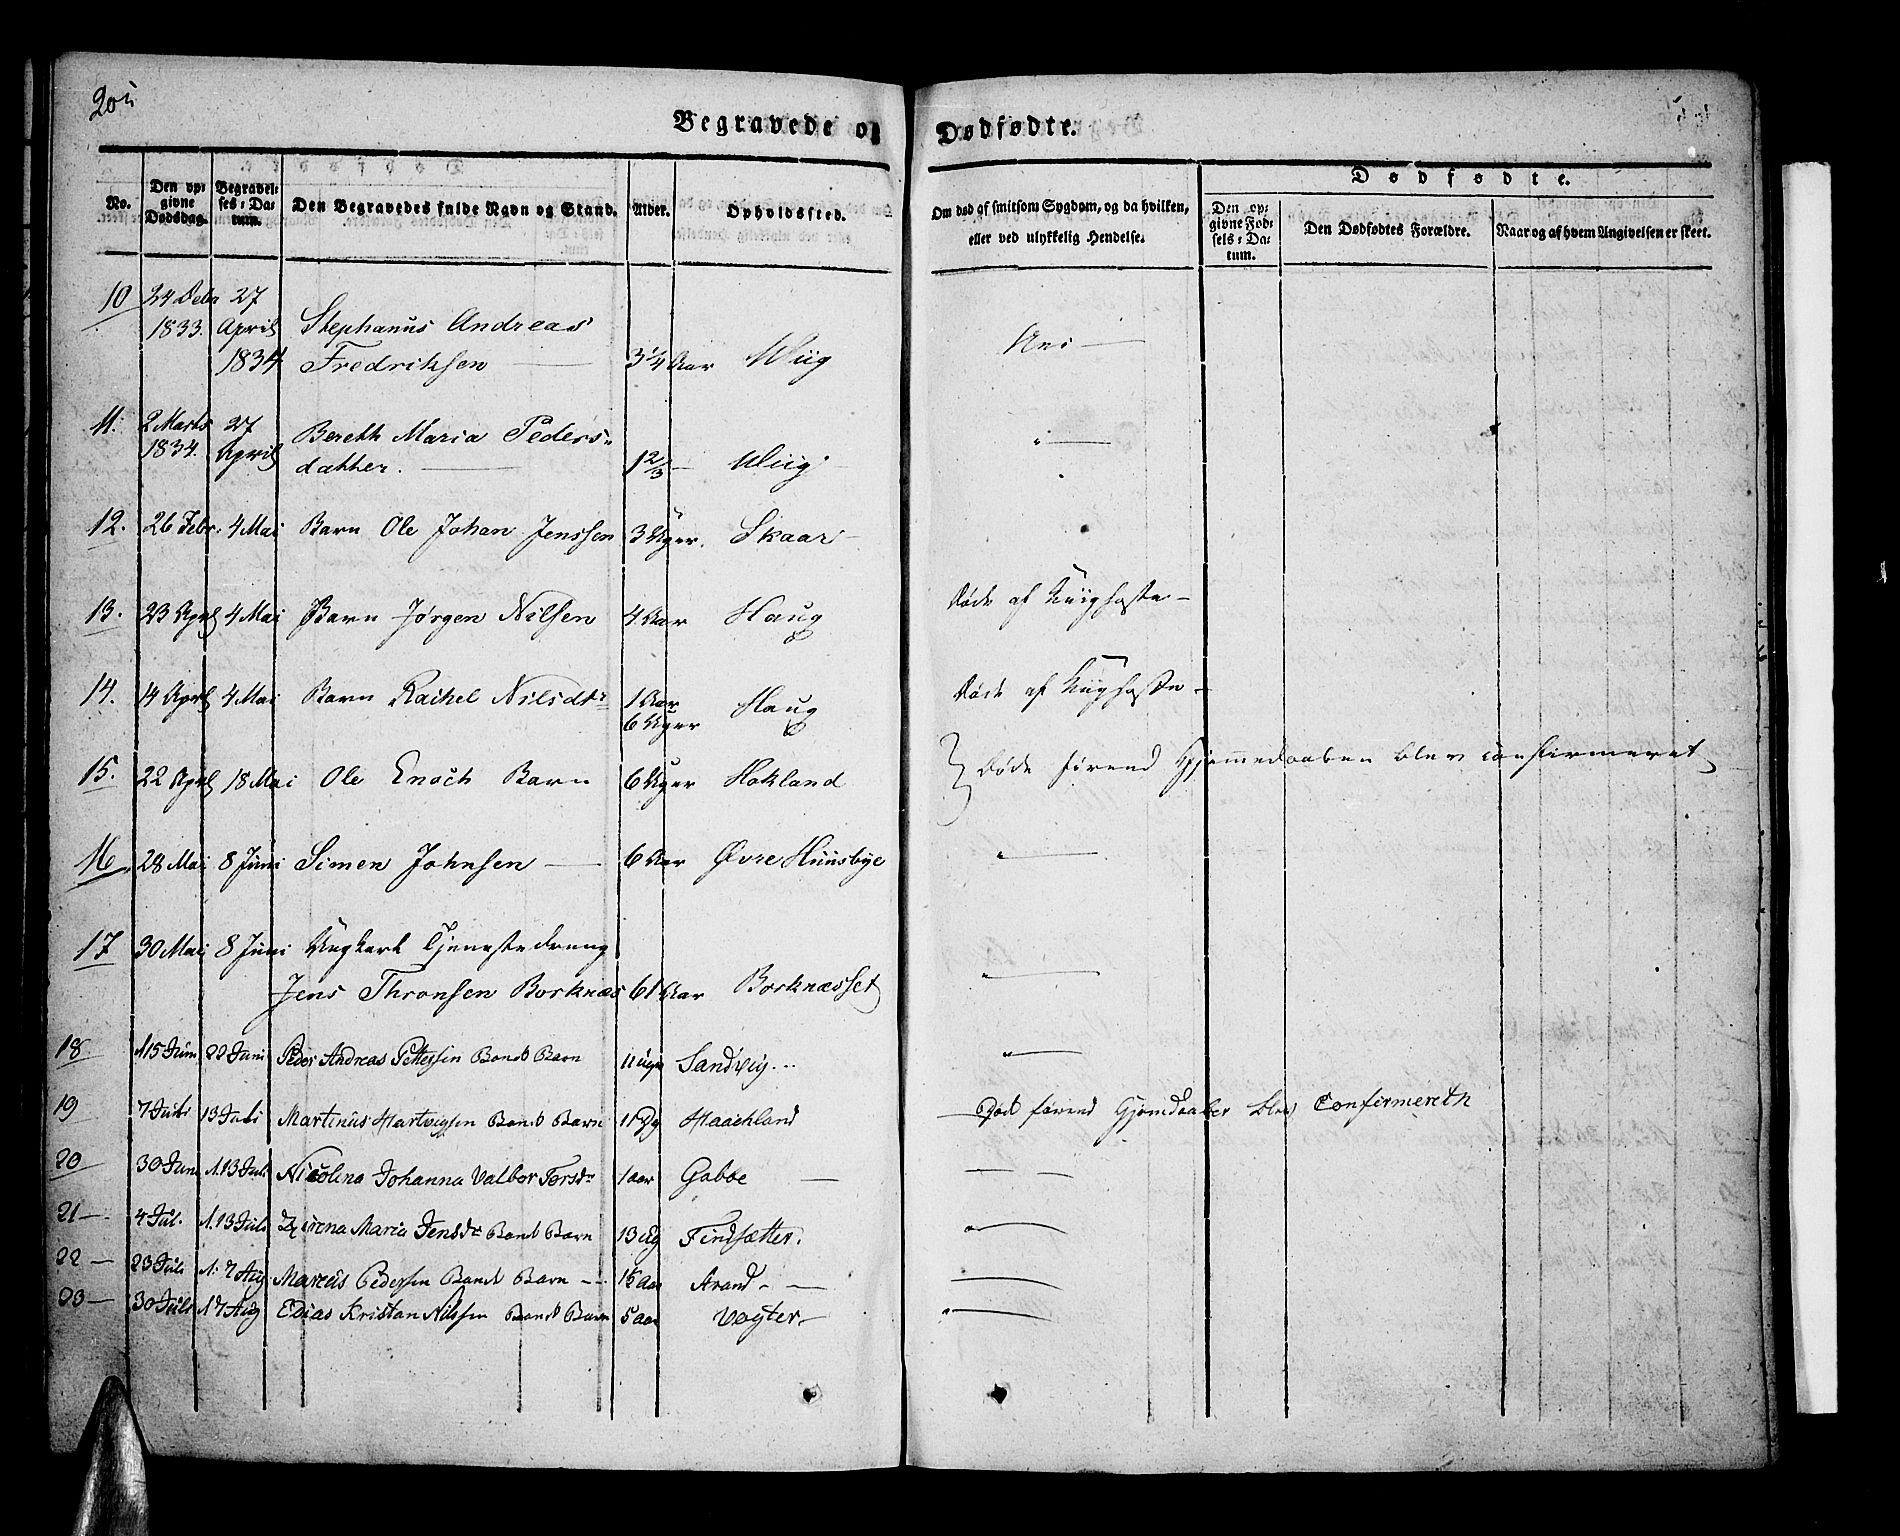 Begravede og Dødfødte.
No.
Den op-
givne
Dødsdag.
Begravel-
ses-Da-
tum.
Den Begravedes fulde Navn og Stand.
Alder.
Opholdssted.
Om død af smitsom Sygdom, og da hvilken,
eller ved ulykkelig Hendelse.
Dødfødte.
Den op-
givne Fød-
sels-Da-
tum.
Den Dødfødtes Forældre.
Naar og af hvem Angivelsen er skeet.
10 24 Debr 27
1833. April Stephanus Andreas
1834 Fredriksen — 3 1/4 Aar Wiig Nei —
11. 2 Marts 27 Bereth Maria Peders-
1834. April datther. — 1 2/3 — Wiig " —
12. 26 Febr. 4 Mai Barn Ole Johan Jenssen 3 Uger. Skaar —
13. 23 April 4 Mai Barn Jørgen Nilsen 4 Aar Haug Døde af Kiighoste —
14. 14 April 4 Mai Barn Rachel Nilsdtr 1 Aar
6 Uger Haug Døde af Kiighoste —
15. 22 April 18 Mai Ole Enoch Barn 6 Uger Hokland Døde førend Hjemmedaaben blev confirmeret
16 28 Mai 8 Juni Simen Johnsen — 6 Aar Øvre Huusbye " —
17 30 Mai 8 Juni Ungkarl Tjenestedreng
Jens Thronsen Borknæs 61 Aar Borknæsset " —
18 15 Juni 22 Juni Peder Andreas Pettersen Bonde Barn 11 uger Sandvig " —
19 7 Juli 13 Juli Martinus Hartvigsen Bonde Barn 11 Dg Haachland — Død førend Hjemdaaben blev Confirmereth
20 30 Juni 13 Juli Nicolina Johanna Valbor Torsdr 1 aar Gaboe — — —
21 — 4 Jul. 13 Juli Maria Jensdr Bonde Barn 13 ug Findsætter. " —
22 — 23 Juli 17 Aug Marcus Pedersen Bonde Barn — 15 aar Strand — —
23 — 30 Juli 17 Aug Edias Kristan Nilssen Bonde Barn 5 aar Vogter — " —